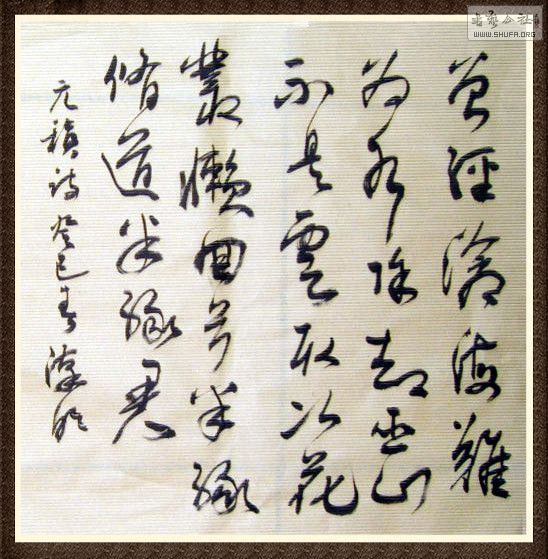 曾經滄海難
為水除却巫山
不是雲取次花
叢懶回首半緣
脩道半緣君
元稹詩癸巳春
書藝公社
WWW.SHUFA.ORG